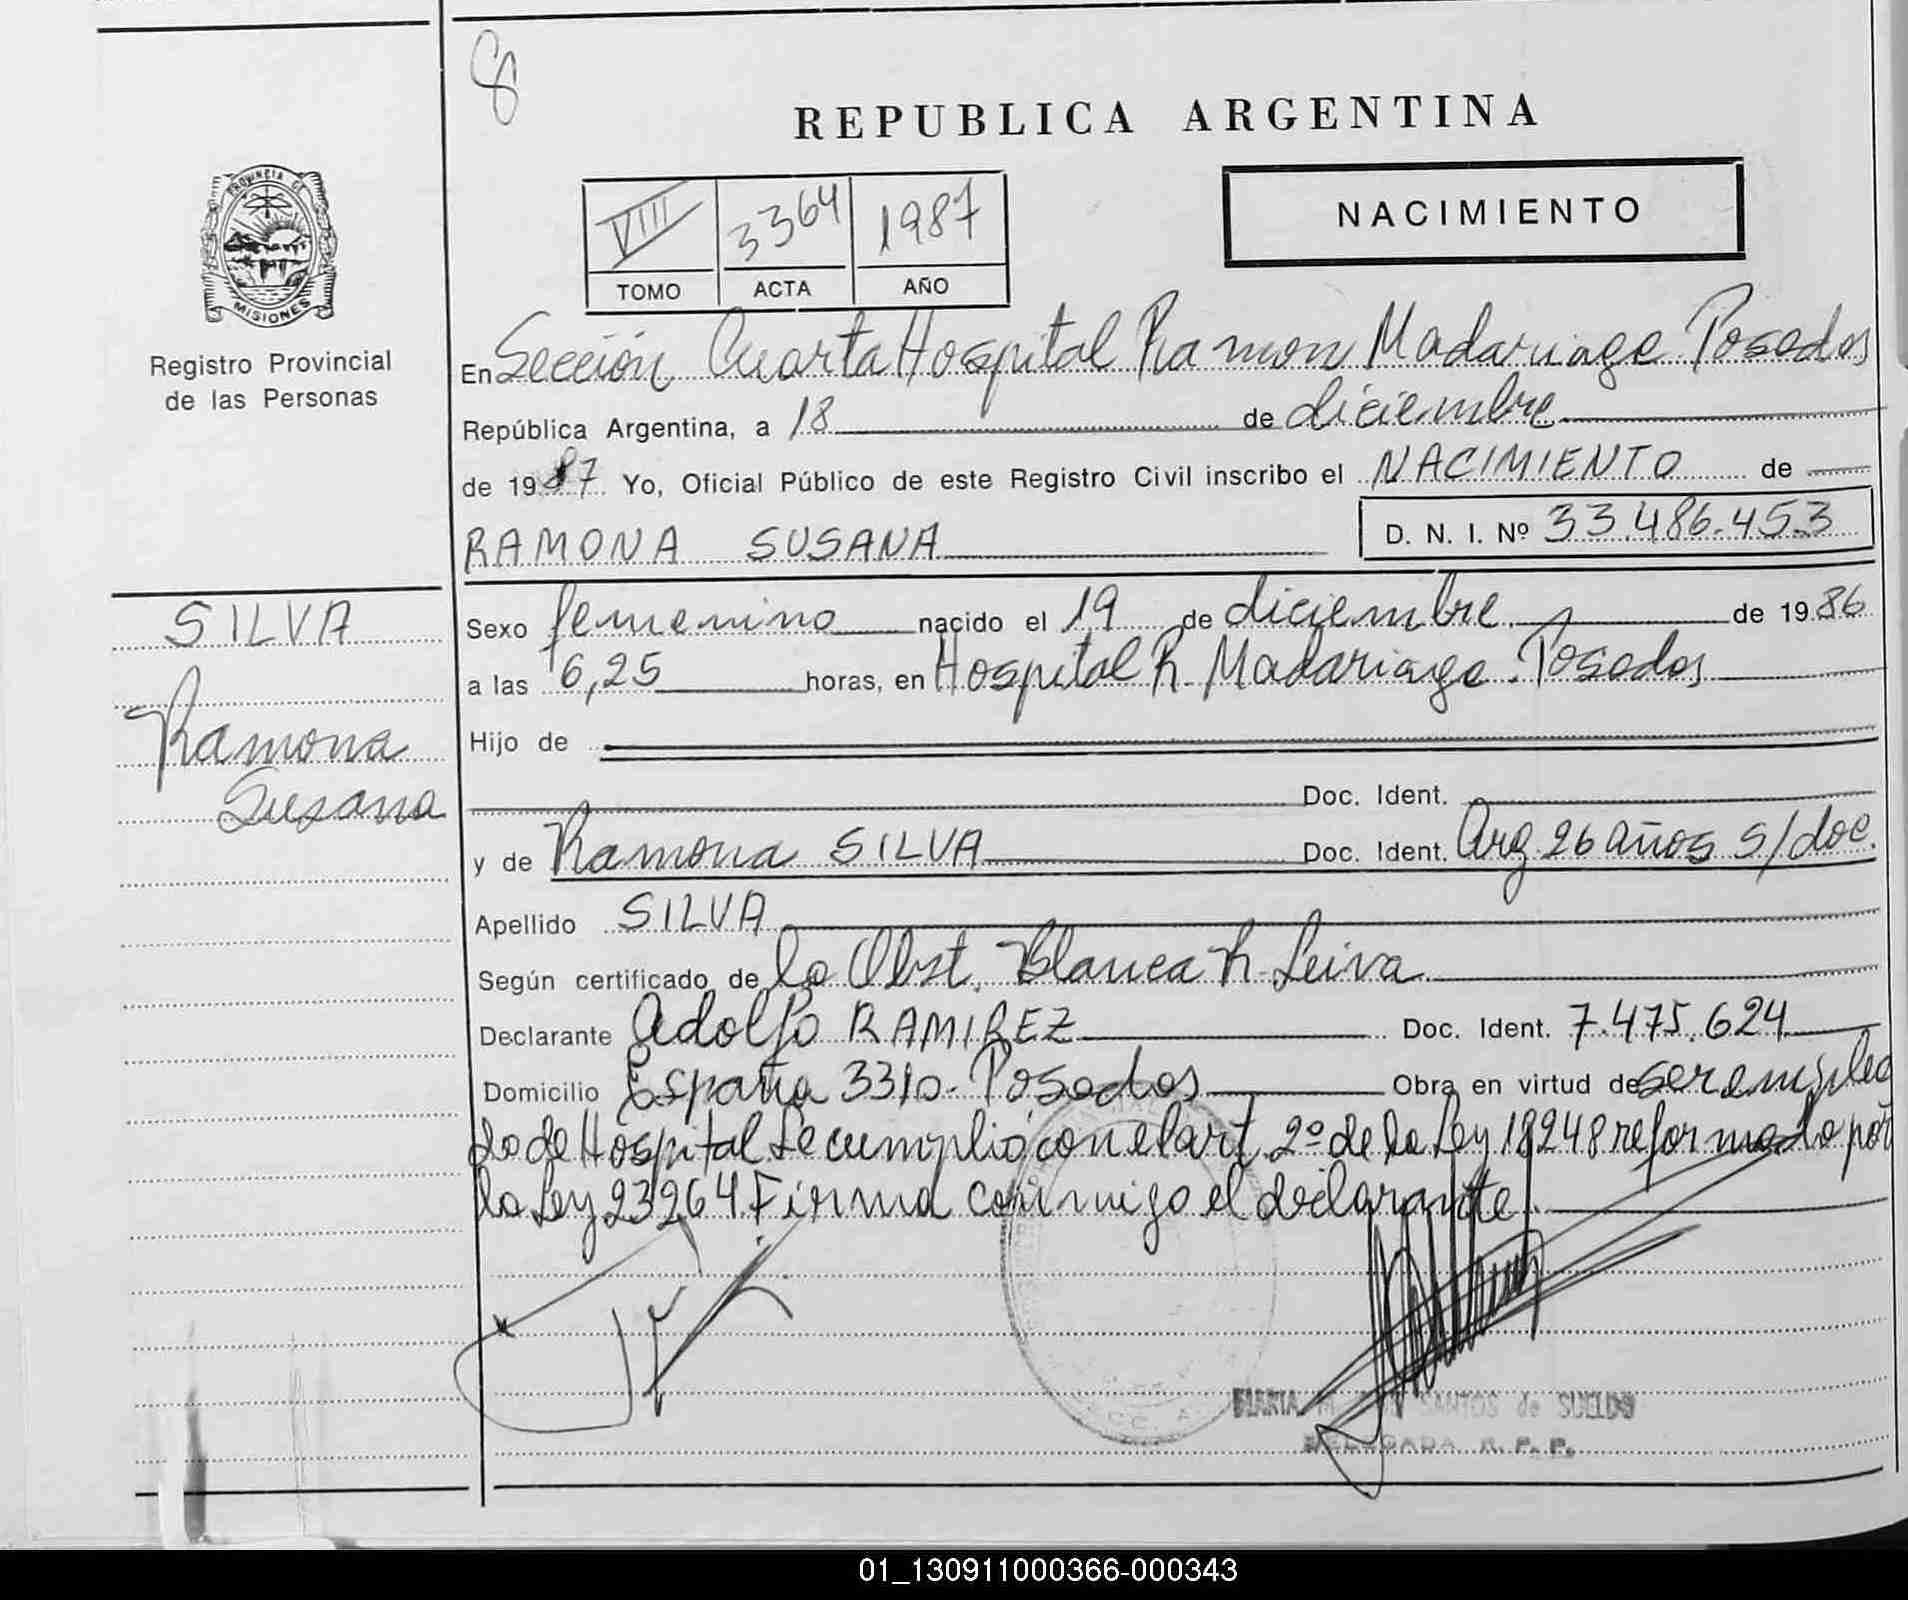 8
REPUBLICA ARGENTINA
PROVINCIA DE
MISIONES
Registro Provincial
de las Personas
VIII 3364 1987
TOMO ACTA AÑO
NACIMIENTO
En Sección Cuarta Hospital Ramon Madariaga Posadas
República Argentina, a 18 de diciembre
de 1987 Yo, Oficial Público de este Registro Civil inscribo el NACIMIENTO de
RAMONA SUSANA D. N. I. Nº 33.486.453
SILVA
Ramona
Susana
Sexo femenino nacido el 19 de diciembre de 1986
a las 6,25 horas, en Hospital R. Madariaga. Posadas
Hijo de
Doc. Ident.
y de Ramona SILVA Doc. Ident. Arg 26 años s/doc.
Apellido SILVA
Según certificado de la Obst. Blanca R. Leiva
Declarante Adolfo RAMIREZ Doc. Ident. 7.475.624
Domicilio España 3310- Posadas Obra en virtud de ser emplea
do de Hospital Se cumplió con el art. 2º de la Ley 18248 reformada por
la Ley 23264. Firma conmigo el declarante.
MARIA SANTOS de SUELDO
DELEGADA R. P. P.
01_130911000366-000343